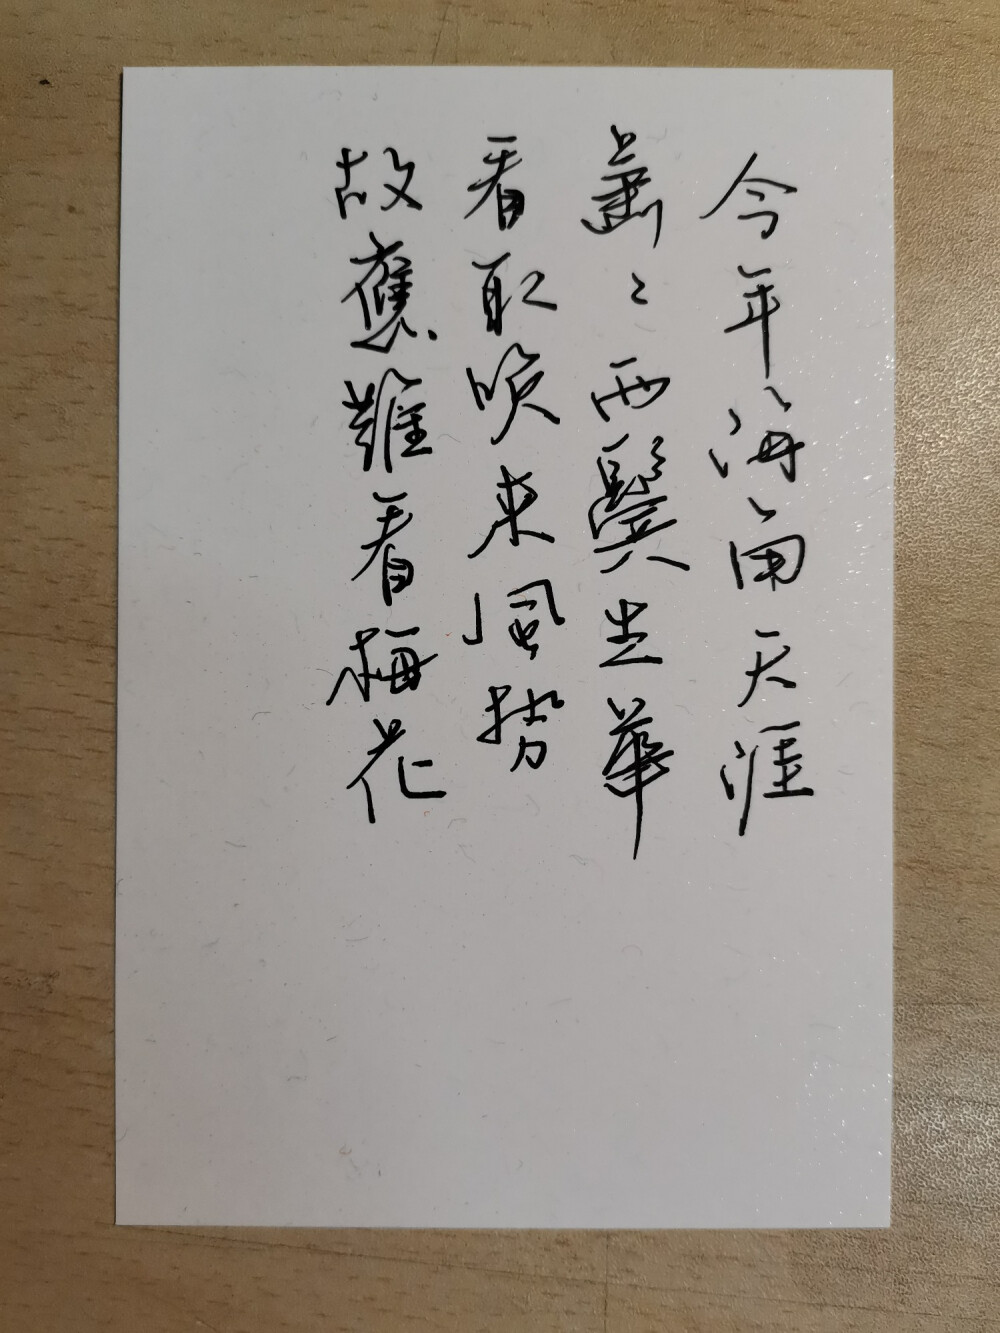 今年海角天涯
蕭〻兩鬢生華
看取晚來風勢
故應難看梅花